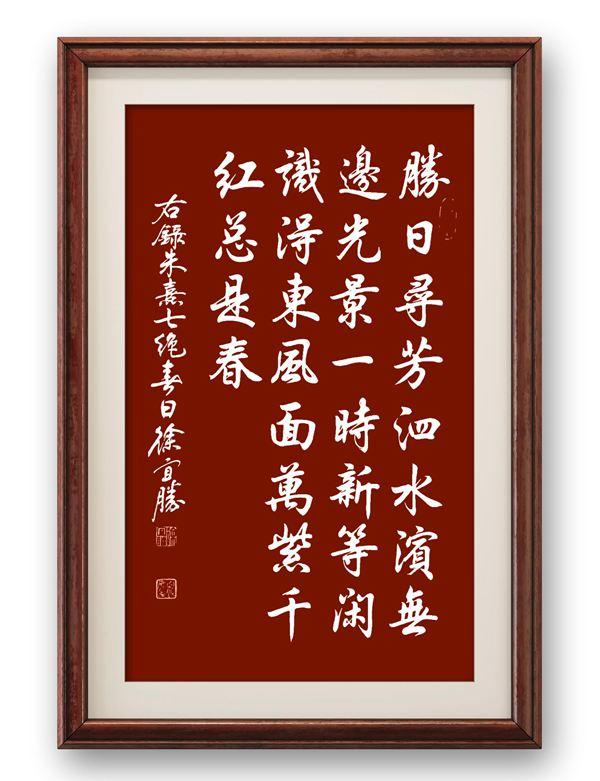 勝日尋芳泗水濱無
邊光景一時新等闲
識得東風面萬紫千
红总是春
右録朱熹七绝春日徐宜勝